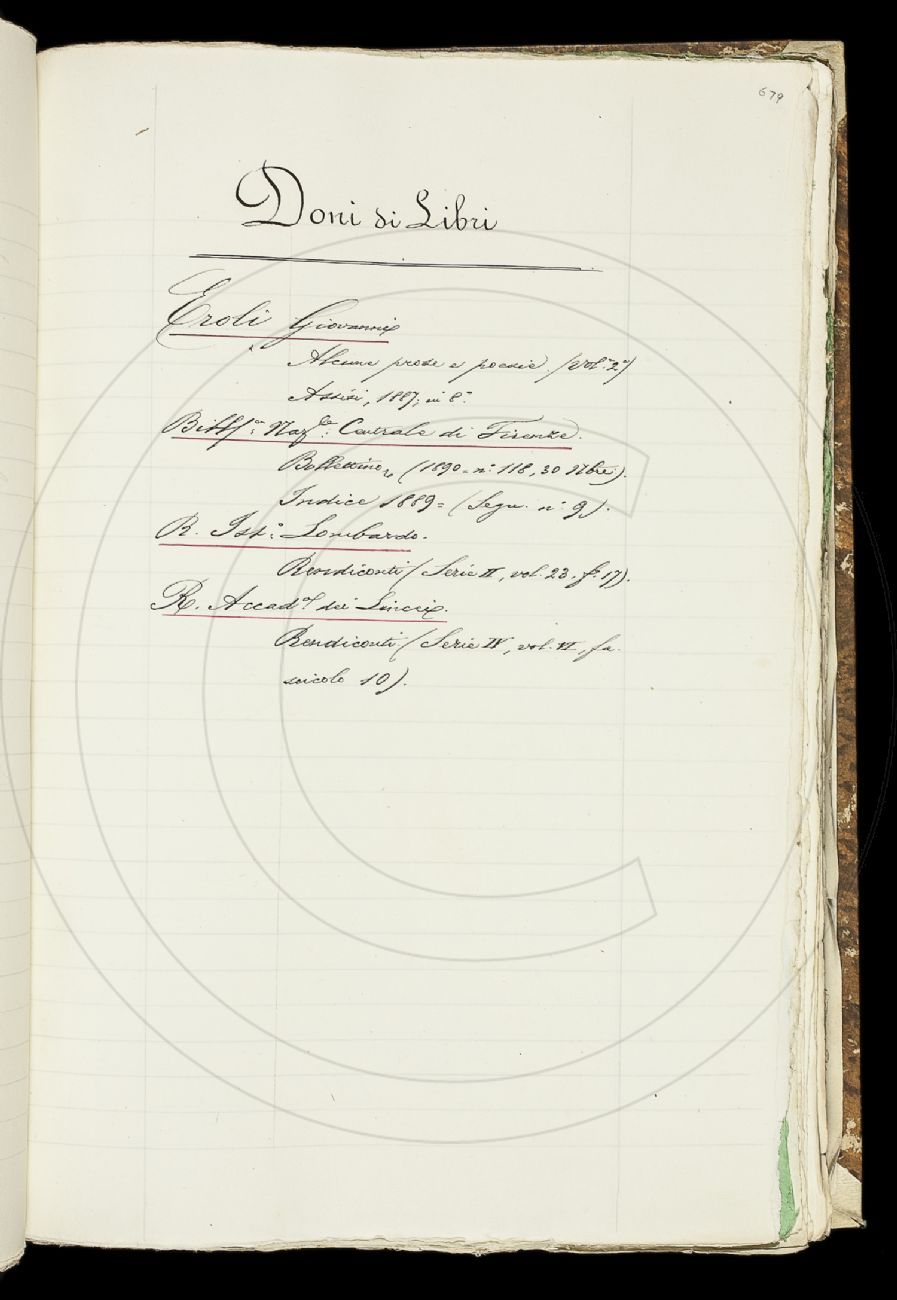 679
Doni di Libri
Eroli Giovanni
Alcune prose e poesie (vol. 2°)
Assisi, 1887; in 8°
Naz.le Centrale di Firenze.
Bollettino, (1890 = n° 118, 30 9bre).
Indice 1889 = (Segu. n° 9).
R. Ist.° Lombardo.
Rendiconti (Serie II, vol. 23. f° 17).
R. Accad.a dei Lincei.
Rendiconti (Serie IV, vol. VI, fa-
scicolo 10).